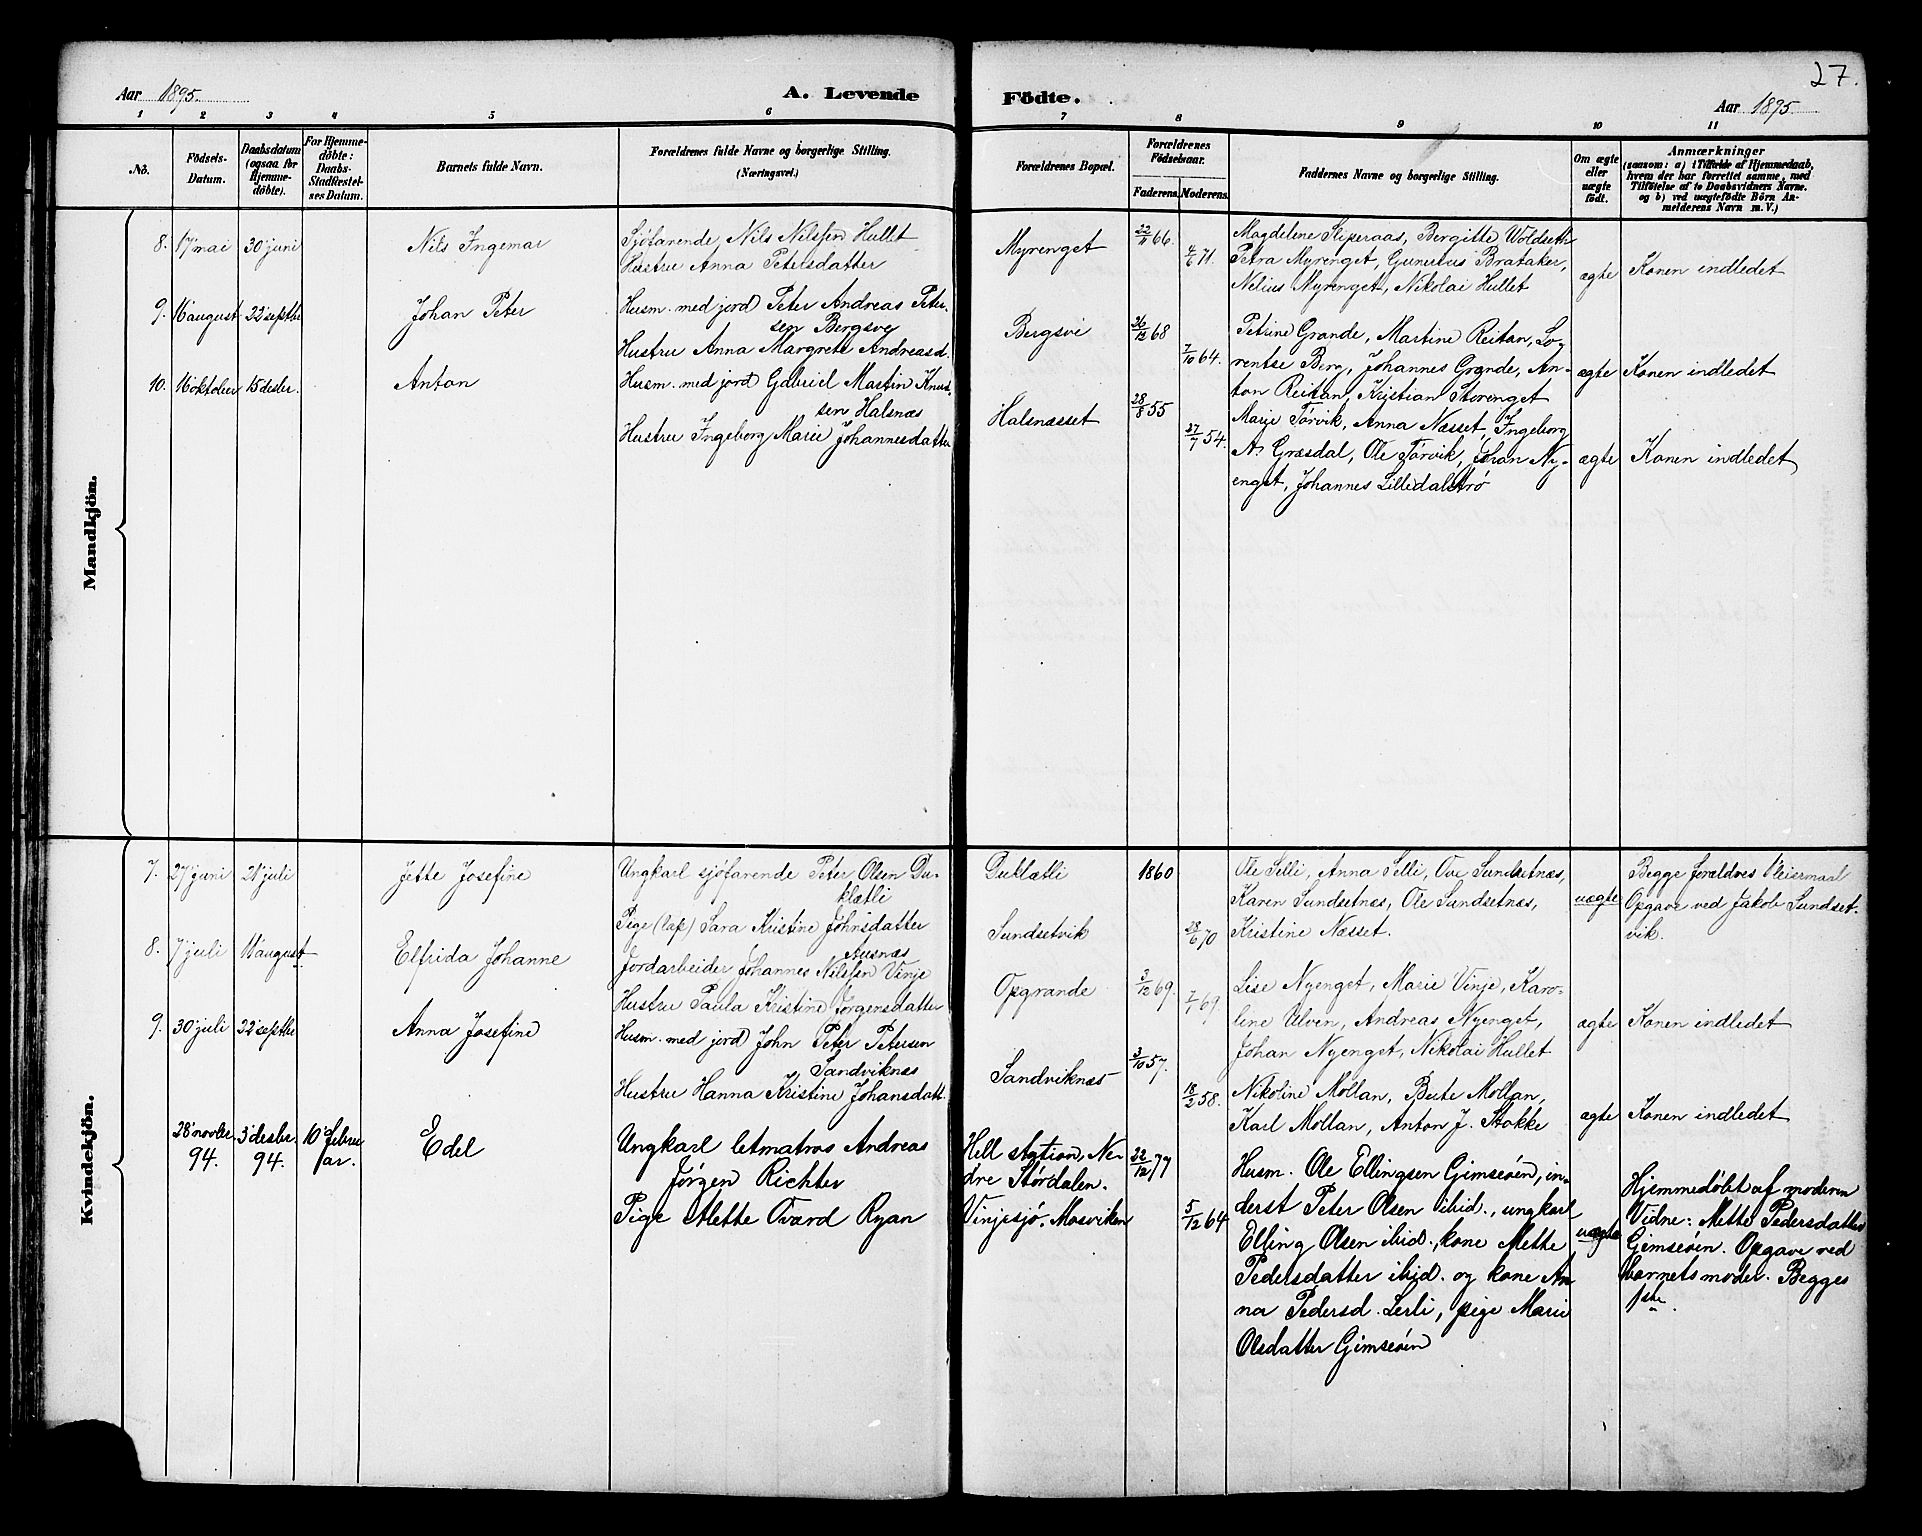 27.
Aar 1895. A. Levende Födte. Aar 1895.
1 2 3 4 5 6 7 8 9 10 11
No. Födsels-Datum. Daabsdatum (ogsaa for Hjemme-döbte). For Hjemme-döbte: Daabs-Stadfestel-ses Datum. Barnets fulde Navn. Forældrenes fulde Navne og borgerlige Stilling. (Næringsvei.) Forældrenes Bopæl. Forældrenes Födselsaar. Faderens. Moderens. Faddernes Navne og borgerlige Stilling. Om ægte eller uægte födt. Anmærkninger (saasom: a) i Tilfælde af Hjemmedaab, hvem der har forrettet samme, med Tilföielse af to Daabsvidners Navne, og b) ved uægtefödte Börn An-melderens Navn m. V.)
Mandkjön.
8. 17 mai 30 juni Nils Ingemar
Sjöfarende Nils Nilssen Hullet
Hustru Anna Petersdatter
Myrenget 22/11 66. 4/6 71.
Magdelene Stiperaas, Bergitte Woldseth
Petra Myrenget, Gunerius Brataker,
Nelius Myrenget, Nikolai Hullet
ægte Konen indledet
9. 16 august 22 septbr Johan Peter
Husm. med jord Peter Andreas Peter-
sen Bergsve
Hustru Anna Margrete Andreasd.
Bergsvi 26/12 68 7/10 64.
Petrine Grande, Martine Reitan, Lo-
rentse Berg, Johannes Grande, An-
ton Reitan, Kristian Storenget
ægte Konen indledet
10. 16 oktober 15 desbr. Anton
Husm. med jord Gabriel Martin Knut-
sen Halsnæs
Hustru Ingeborg Marie Johannesdatter
Halsnæsset 28/8 55 27/7 54.
Marie Tørvik, Anna Næsset, Ingeborg
A. Græsdal, Ole Tørvik, Johan Ny-
enget, Johannes Lilledalstrø
ægte Konen indledet
Kvindekjön.
7. 27 juni 21 juli Jette Josefine
Ungkarl sjöfarende Peter Olsen Du-
klætli
Pige (lap) Sara Kristine Johnsdatter
Ausnæs
Duklætli 1860
Sundsetvik 28/6 70
Ole Selli, Anna Selli, Ove Sundsetnæs,
Karen Sundsetnæs, Ole Sundsetnæs,
Kristine Næsset.
uægte
Begge forældres leiermaal
Opgave ved Jakob Sundset-
vik.
8. 7 juli 11 august Elfrida Johanne
Jordarbeider Johannes Nilssen Vinje
Hustru Paula Kristine Jørgensdatter
Opgrande 3/12 69. 7/1 69.
Lise Nyenget, Marie Vinje, Karo-
line Ulven, Andreas Nyenget,
Johan Nyenget, Nikolai Hullet
ægte Konen indledet
9. 30 juli 22 septbr Anna Josefine
Husm. med jord John Peter Petersen
Sandviknæs
Hustru Hanna Kristine Johansdatt.
Sandviknæs 3/10 57. 18/2 58.
Nikoline Mollan, Berte Mollan,
Karl Mollan, Anton J. Stokke
ægte Konen indledet
28 novbr. 94. 3 desbr. 94. 10 februar. Edel
Ungkarl letmatros Andreas
Jørgen Richter
Pige Alette Tværd Ryan
Hell station, Ne-
dre Størdalen.
Vinjesjø, Mosviken
22/12 77 5/12 64
Husm. Ole Ellingsen Gimseøen, in-
derst Peter Olsen ibid., ungkarl
Elling Olsen ibid., kone Mette
Pedersdatter ibid. og kone An-
na Pedersd. Lerli, pige Marie
Olsdatter Gimseøen
uægte
Hjemmedøbt af moderen
Vidne: Mette Pedersdatter
Gimseøen. Opgave ved
barnets moder. Begges
1ste.